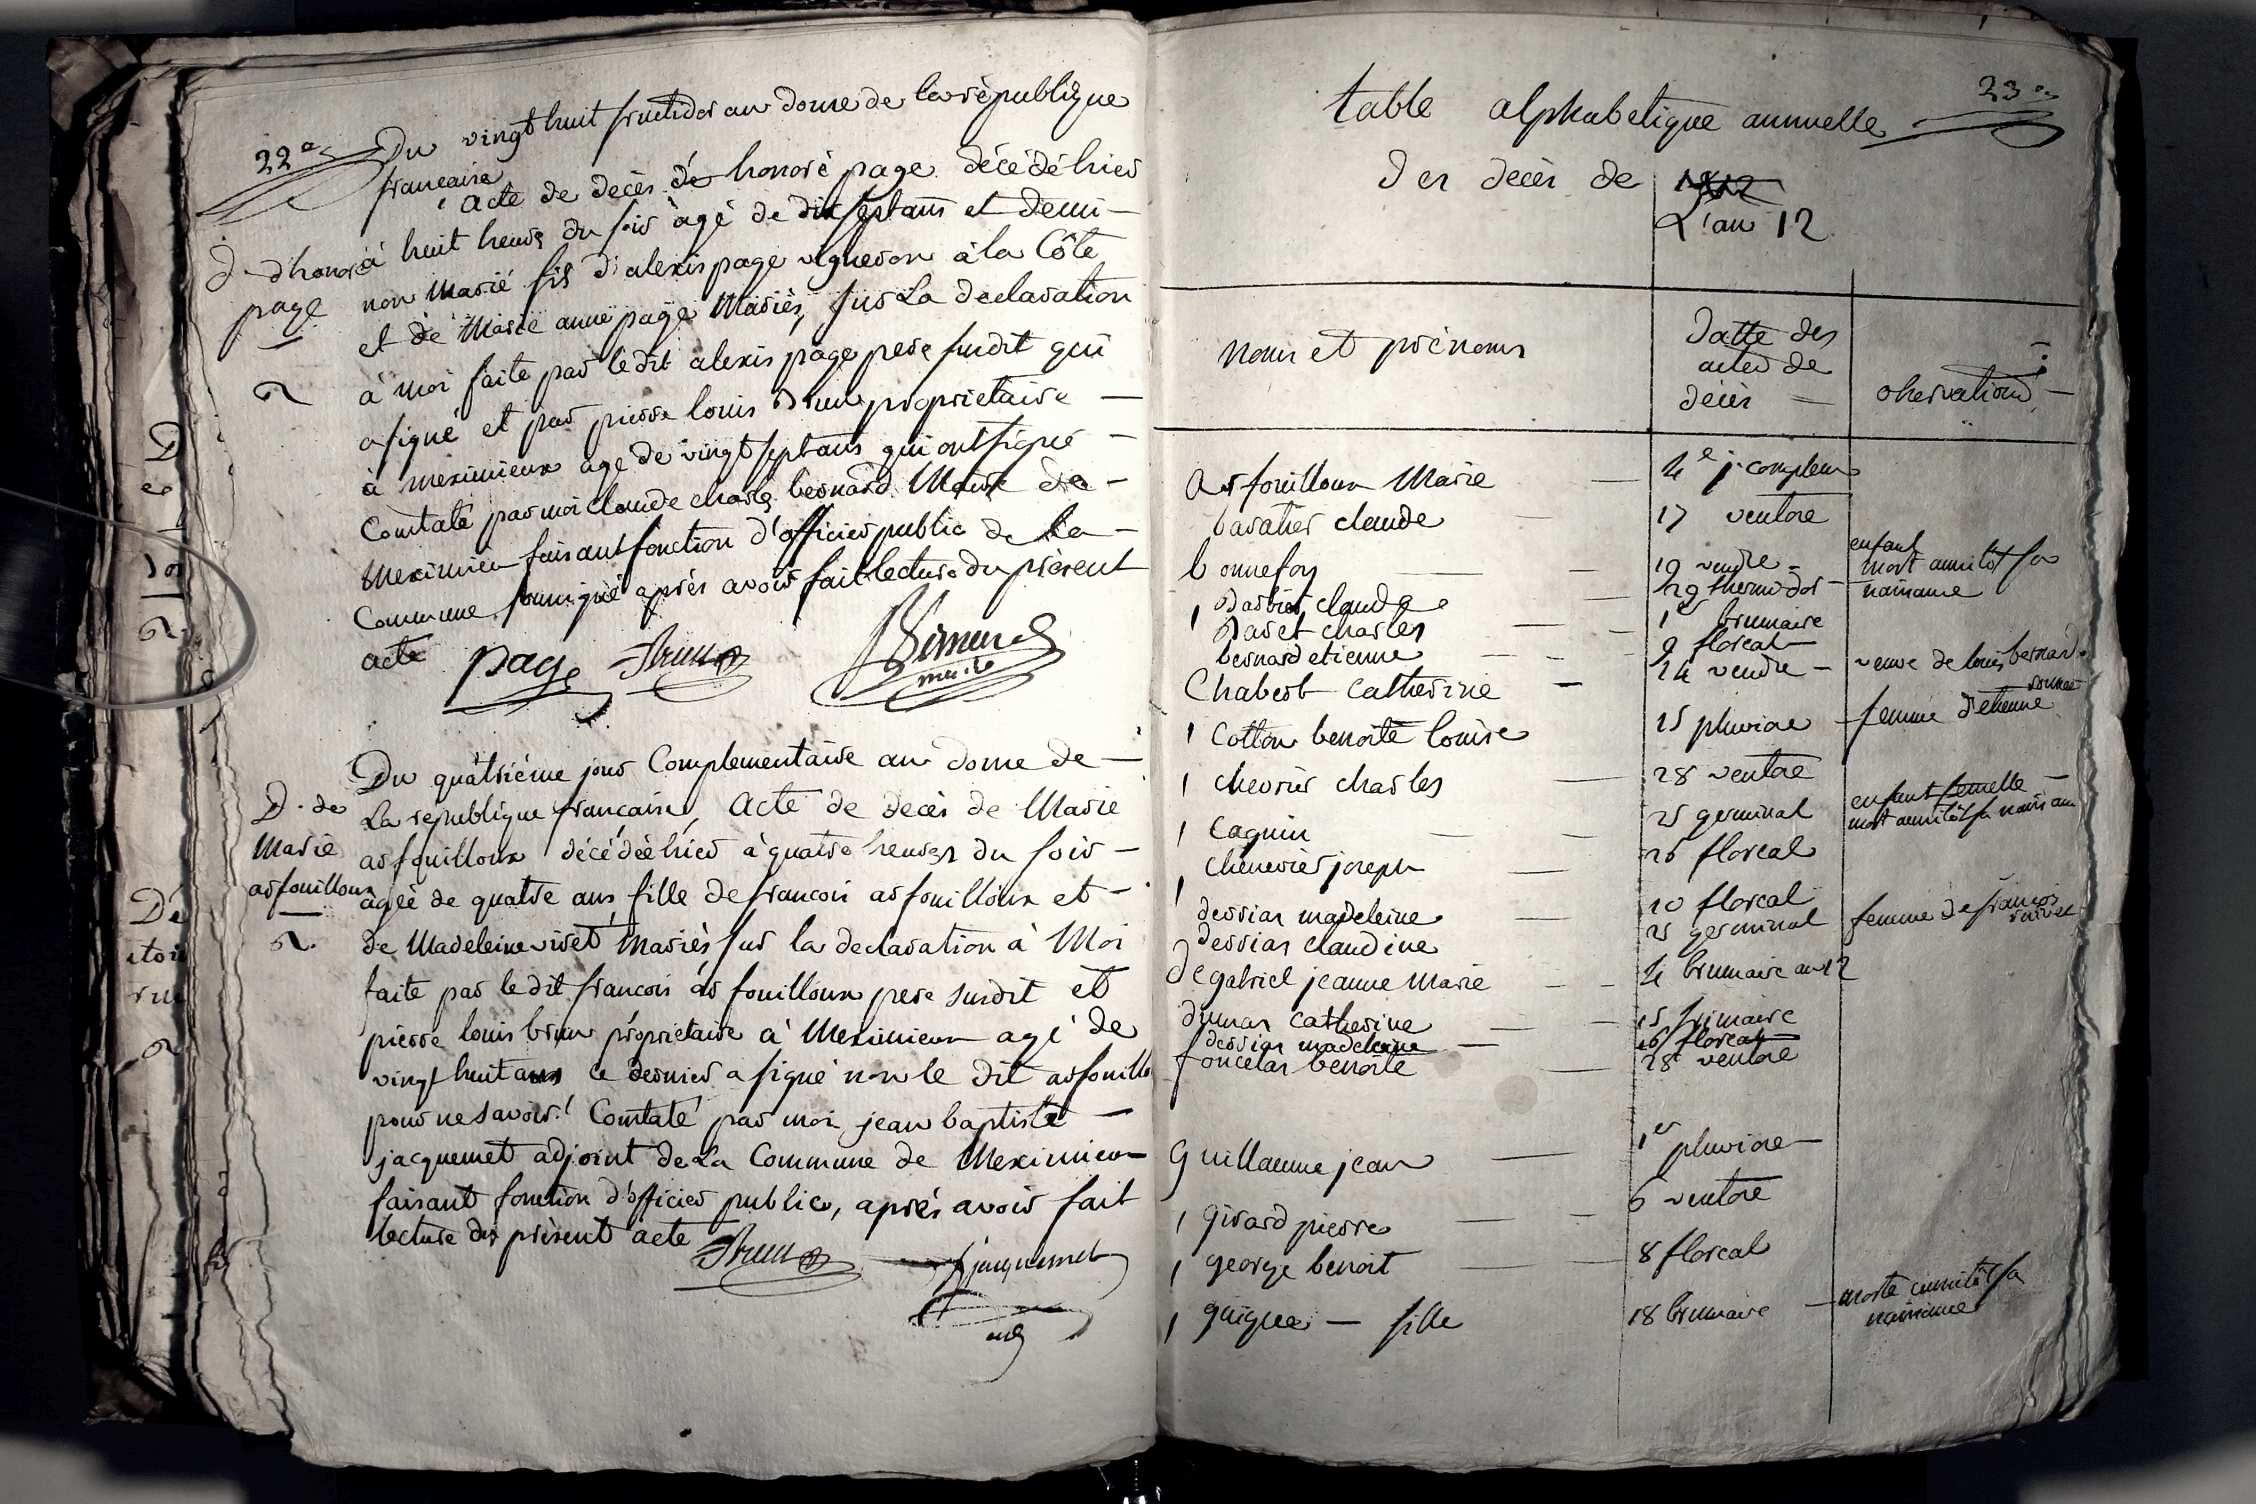 22e
Du vingt huit fructidor an douze de la république
francaise
acte de decès de honoré page décédé hier
à huit heures du soir agé de dix sept ans et demi
non marié fils d'alexis page vigneron à la Côte
et de Marie anne page mariés, sur La declaration
à moi faite par le dit alexis page pere susdit qui
a signé et par pierre louis brun proprietaire
à meximieux age de vingt sept ans qui ont signé
Constaté par moi claude charle bernard Maire de
Meximieu faisant fonction d'officier public de la
Commune soussigné après avoir fait lecture du présent
acte
D. d honoré
page
page Brun
maire
Du quatrième jour Complementaire an douze de
La republique francaise, Acte de decès de Marie
arfouilloux décédéé hier à quatre heures du soir
agée de quatre ans fille de francois arfouilloux et
de Madeleine viret mariés, sur la declaration à Moi
faite par le dit francois arfouilloux pere susdit et
pierre louis brun proprietaire à Meximieux agé de
vingt huit ans ce dernier a signé non le dit arfouillo
pour ne savoir. Constaté par moi jean baptiste
jacquemet adjoint de La Commune de Meximieux
faisant fonction d'officier public, après avoir fait
lecture du présent acte
D. de
Marie
arfouilloux
Brun jacquemet
adj
table alphabetique annuelle
23e
des décès de
L'an 12
noms et prénoms
Datte des
actes de
décès
observations
arfouilloux Marie 4e j. complem
baratier claude 17 ventose
bonnefoy 19 vendre enfant
mort aussitôt sa
naissance
barbier claude 29 thermidor
baret charles 1er brumaire
bernard etienne 9 floreal
Chabert catherine 14 vendre veuve de louis bernard
1 Cotton benoite louise 15 pluviose femme d'etienne
1 chevrier charles 28 ventose
1 Caquin 25 germinal enfant femelle
mort aussitôt sa naissan
chenevier joseph 26 floreal
1 dessiar madeleine 10 floreal
dessiar claudine 25 germinal femme de francois
degabriel jeanne Marie 4 brumaire an 12
dumar catherine 15 frimaire
dessiar madeleine 26 floreal
foncelar benoite 28 ventose
Guillaume jean 1er pluviose
1 girard pierre 6 ventose
1 george benoit 8 floreal
1 guigue — fille 18 brumaire morte aussitôt sa
naissance